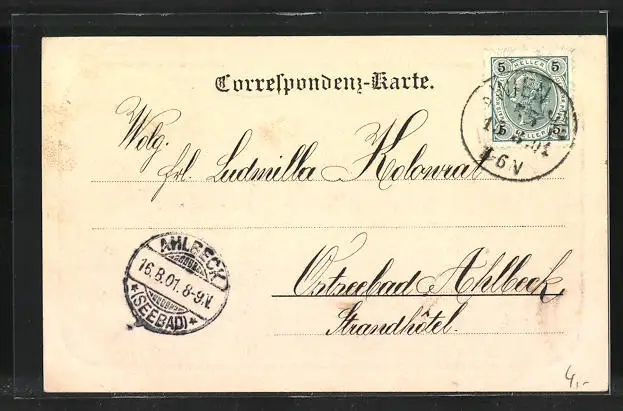 Correspondenz-Karte.
5 HELLER 5
5 HELLER 5
WIEN
6 V
Wolg.
Frl. Ludmilla Kolowrat
AHLBECK
16.8.01.8-9V.
*(SEEBAD)*
Ostseebad Ahlbeck
Strandhôtel.
4,-